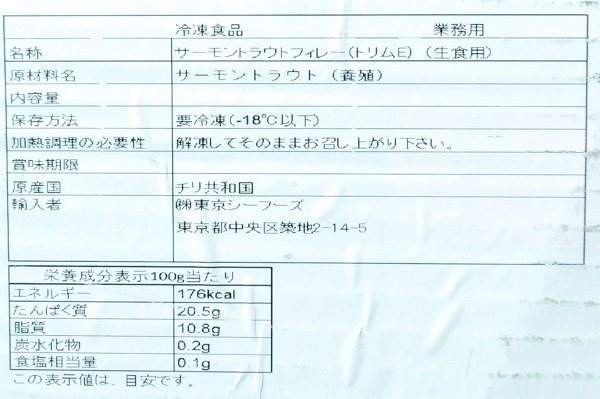 冷凍食品 業務用
名称 サーモントラウトフィレー(トリムE) (生食用)
原材料名 サーモントラウト (養殖)
内容量
保存方法 要冷凍(-18℃以下)
加熱調理の必要性 解凍してそのままお召し上がり下さい。
賞味期限
原産国 チリ共和国
輸入者 ㈱東京シーフーズ
東京都中央区築地2-14-5
栄養成分表示100g当たり
エネルギー 176kcal
たんぱく質 20.5g
脂質 10.8g
炭水化物 0.2g
食塩相当量 0.1g
この表示値は、目安です。